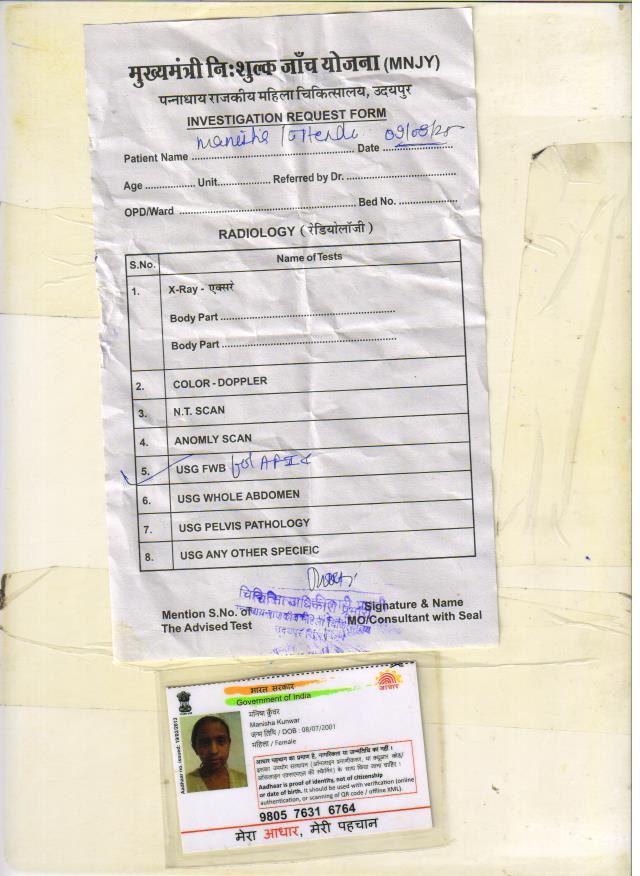 मुख्यमंत्री निःशुल्क जाँच योजना (MNJY)
पन्नाधाय राजकीय महिला चिकित्सालय, उदयपुर
INVESTIGATION REQUEST FORM
Patient Name ........ Manisha Date ........ 09/05/25
Age ................ Unit................. Referred by Dr. ...................................
OPD/Ward ........................................................ Bed No. ...................
RADIOLOGY ( रेडियोलॉजी )
S.No. Name of Tests
1. X-Ray - एक्सरे
Body Part .......................................................
Body Part .......................................................
2. COLOR - DOPPLER
3. N.T. SCAN
4. ANOMLY SCAN
5. USG FWB for AFI
6. USG WHOLE ABDOMEN
7. USG PELVIS PATHOLOGY
8. USG ANY OTHER SPECIFIC
Mention S.No. of Signature & Name
The Advised Test MO/Consultant with Seal
भारत सरकार
Government of India
आधार
Aadhaar no. issued: 19/02/2013
मनिषा कुँवर
Manisha Kunwar
जन्म तिथि / DOB : 08/07/2001
महिला / Female
आधार पहचान का प्रमाण है, नागरिकता या जन्मतिथि का नहीं ।
इसका उपयोग सत्यापन (ऑनलाइन प्रमाणीकरण, या क्यूआर कोड/
ऑफ़लाइन एक्सएमएल की स्कैनिंग) के साथ किया जाना चाहिए ।
Aadhaar is proof of identity, not of citizenship
or date of birth. It should be used with verification (online
authentication, or scanning of QR code / offline XML).
9805 7631 6764
मेरा आधार, मेरी पहचान